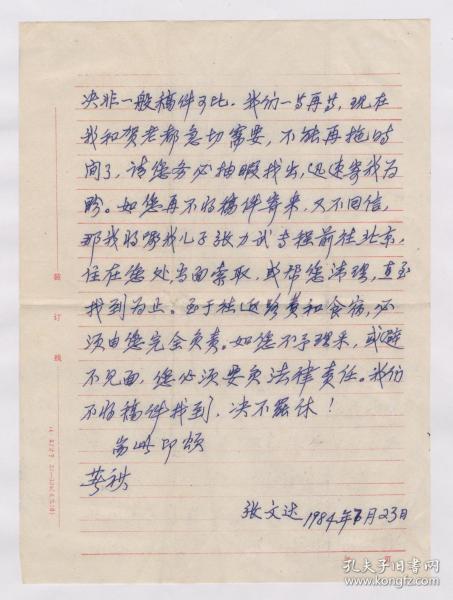 决非一般稿件可比。我们一等再等，现在
我和贺老都急切需要，不能再拖时
间了，请您务必抽暇找出，迅速寄我为
盼。如您再不将稿件寄来，又不回信，
那我将嘱我儿子张力武专程前往北京，
住在您处当面索取，或帮您清理，直至
找到为止。至于往返路费和食宿，必
须由您完全负责。如您不予理采，或避
不见面，您必须要负法律责任。我们
不将稿件找到，决不罢休！
耑此即颂
暮祺
张文达 1984年 月23日
装
订
线
孔夫子旧书网
www.kongfz.com